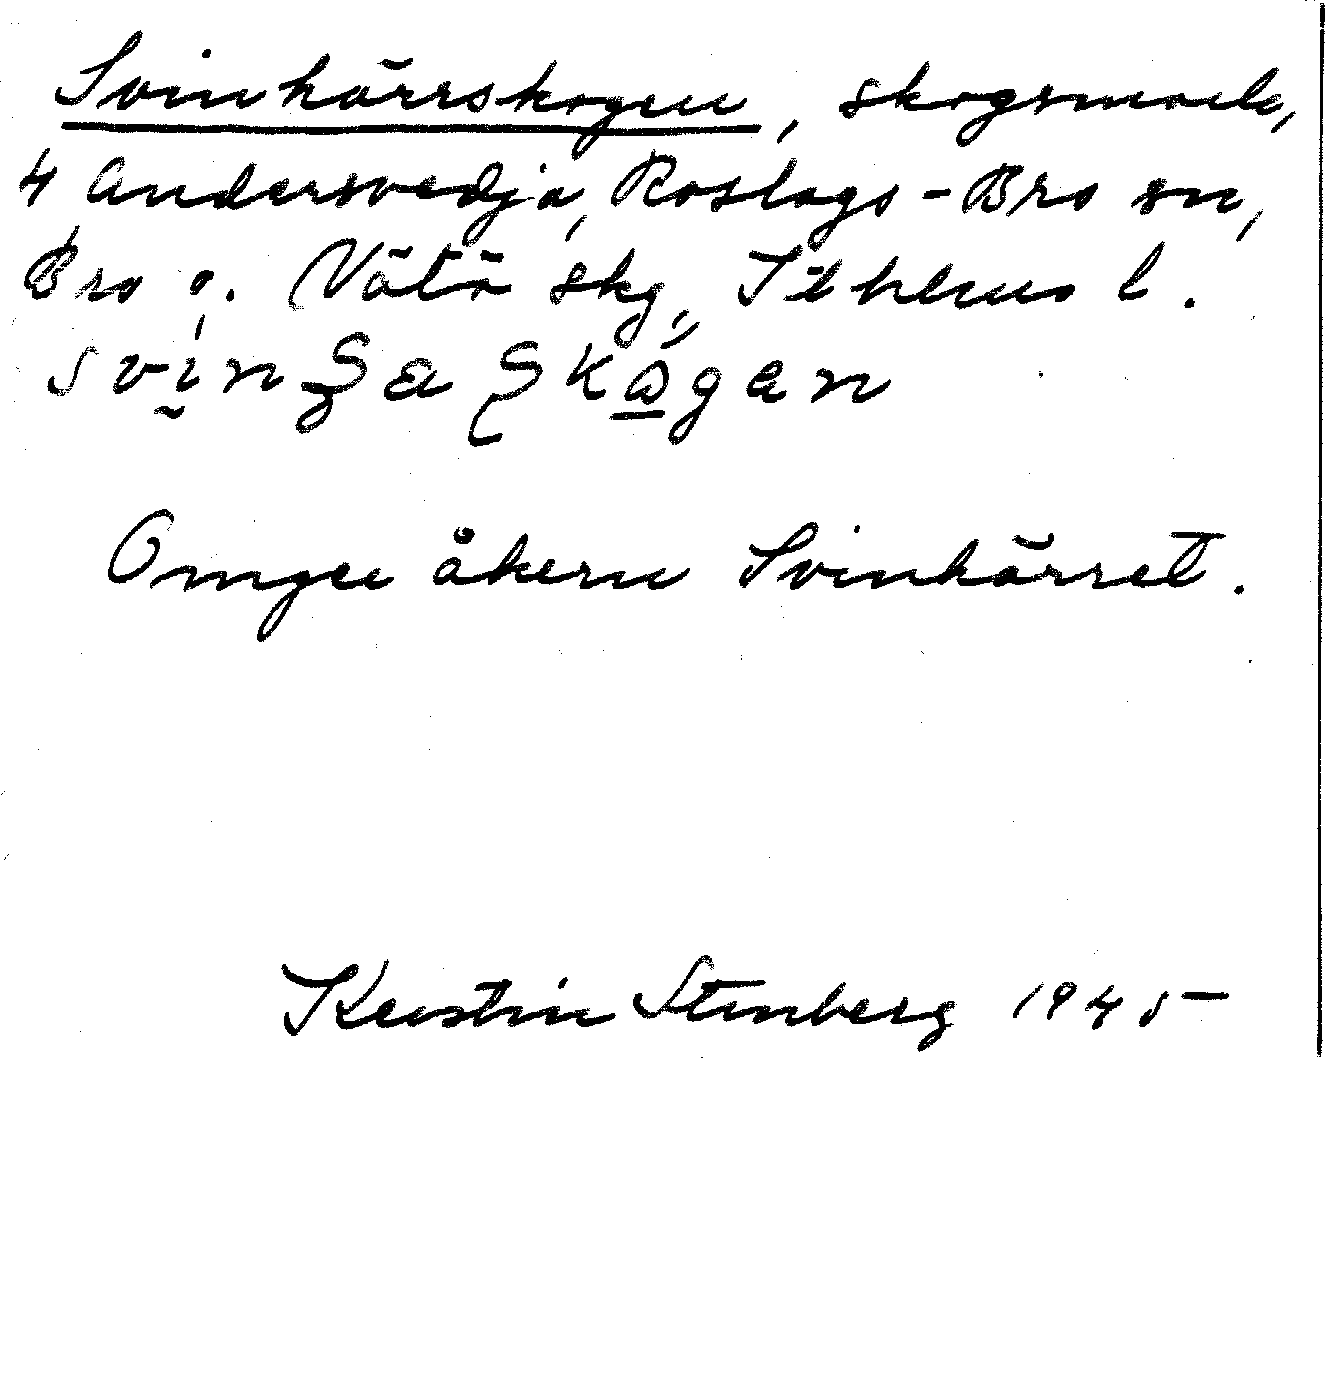 Svinkärrskogen, skogsmark,
4 Andersvedja, Roslags-Bro sn,
Bro o. Vätö skg, Sthlms l.
Omger åkern Svinkärret.
Kerstin Stenberg 1945